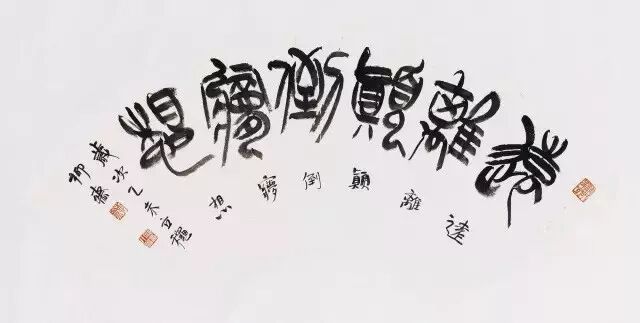 遠離顛倒夢想
遠離顛倒夢想
歲次乙未立穐
柳